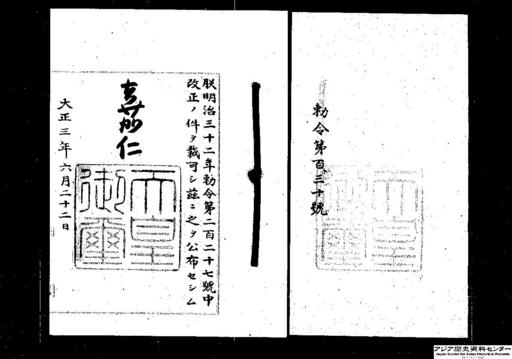 勅令第百三十號
朕明治三十二年勅令第二百二十七號中
改正ノ件ヲ裁可シ茲ニ之ヲ公布セシム
嘉仁
天皇
御璽
大正三年六月二十二日
アジア歴史資料センター
Japan Center for Asian Historical Records